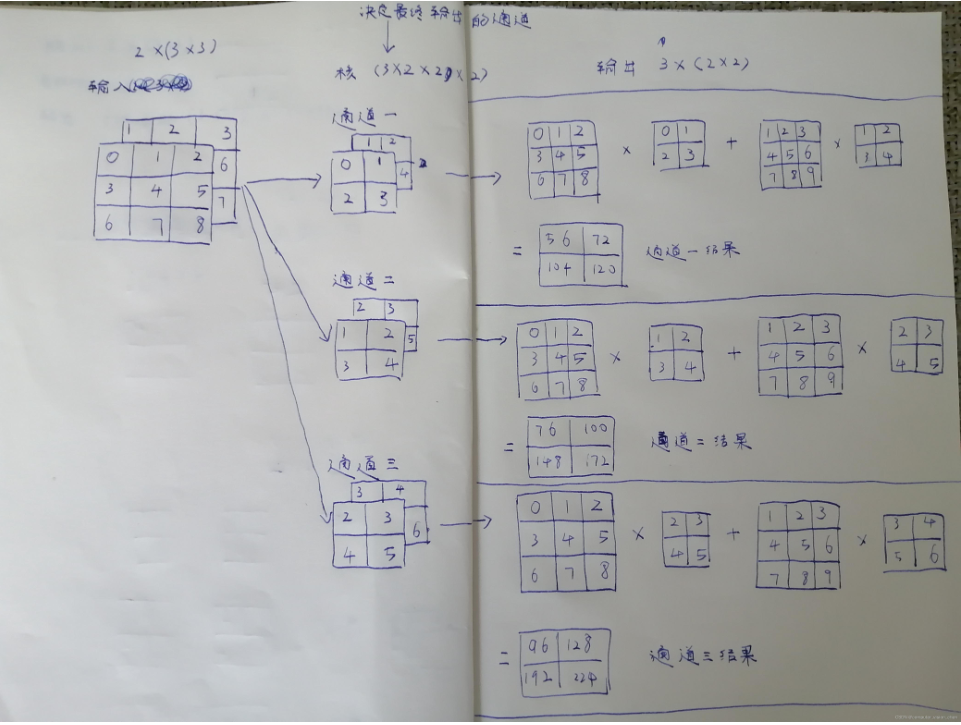 决定最终输出的通道
2 × (3 × 3)
输入
核 (3×2×2)×2)
输出 3 × (2 × 2)
1 2 3
0 1 2 6
3 4 5 7
6 7 8
通道一
1 2
0 1 4
2 3
0 1 2
3 4 5
6 7 8
×
0 1
2 3
+
1 2 3
4 5 6
7 8 9
×
1 2
3 4
=
56 72
104 120
通道一结果
通道二
2 3
1 2 5
3 4
0 1 2
3 4 5
6 7 8
×
1 2
3 4
+
1 2 3
4 5 6
7 8 9
×
2 3
4 5
=
76 100
148 172
通道二结果
通道三
3 4
2 3 6
4 5
0 1 2
3 4 5
6 7 8
×
2 3
4 5
+
1 2 3
4 5 6
7 8 9
×
3 4
5 6
=
96 128
192 224
通道三结果